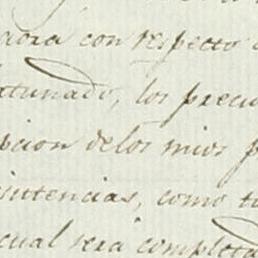 aora con respecto
rtunado, los precu
pcion delos mios p
sistencias, como t
cual sera completa